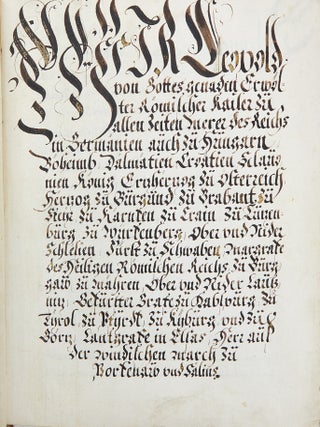 WIR Leopold
von Gottes genaden Erwöl
ter Römischer Kaiser Zü
allen Zeiten Merer des Reichs
in Germanien auch zü Hüngarn
Boheimb Dalmatien Croatien Sclauo
nien König Erzherzog Zü Osterreich
Herzog Zü Bürgünd Zü Brabant Zü
Steir Zü Karnten Zü Crain Zü Lüzen
bürg Zü Würtenberg Ober und Nider
Schlesien Fürst Zü Schwaben Marggraf
des Heiligen Römischen Reichs Zü Bürg
gaw Zü Mahren Ober und Nider Laüsz
niz Gefürster Graf Zü Habsbürg Zü
Tyrol Zü Pfyrdt, Zü Kyburg und Zü
Görz Lantgraf in Elsas Herr auf
Der Windischen March Zü
Portenaw und Salins